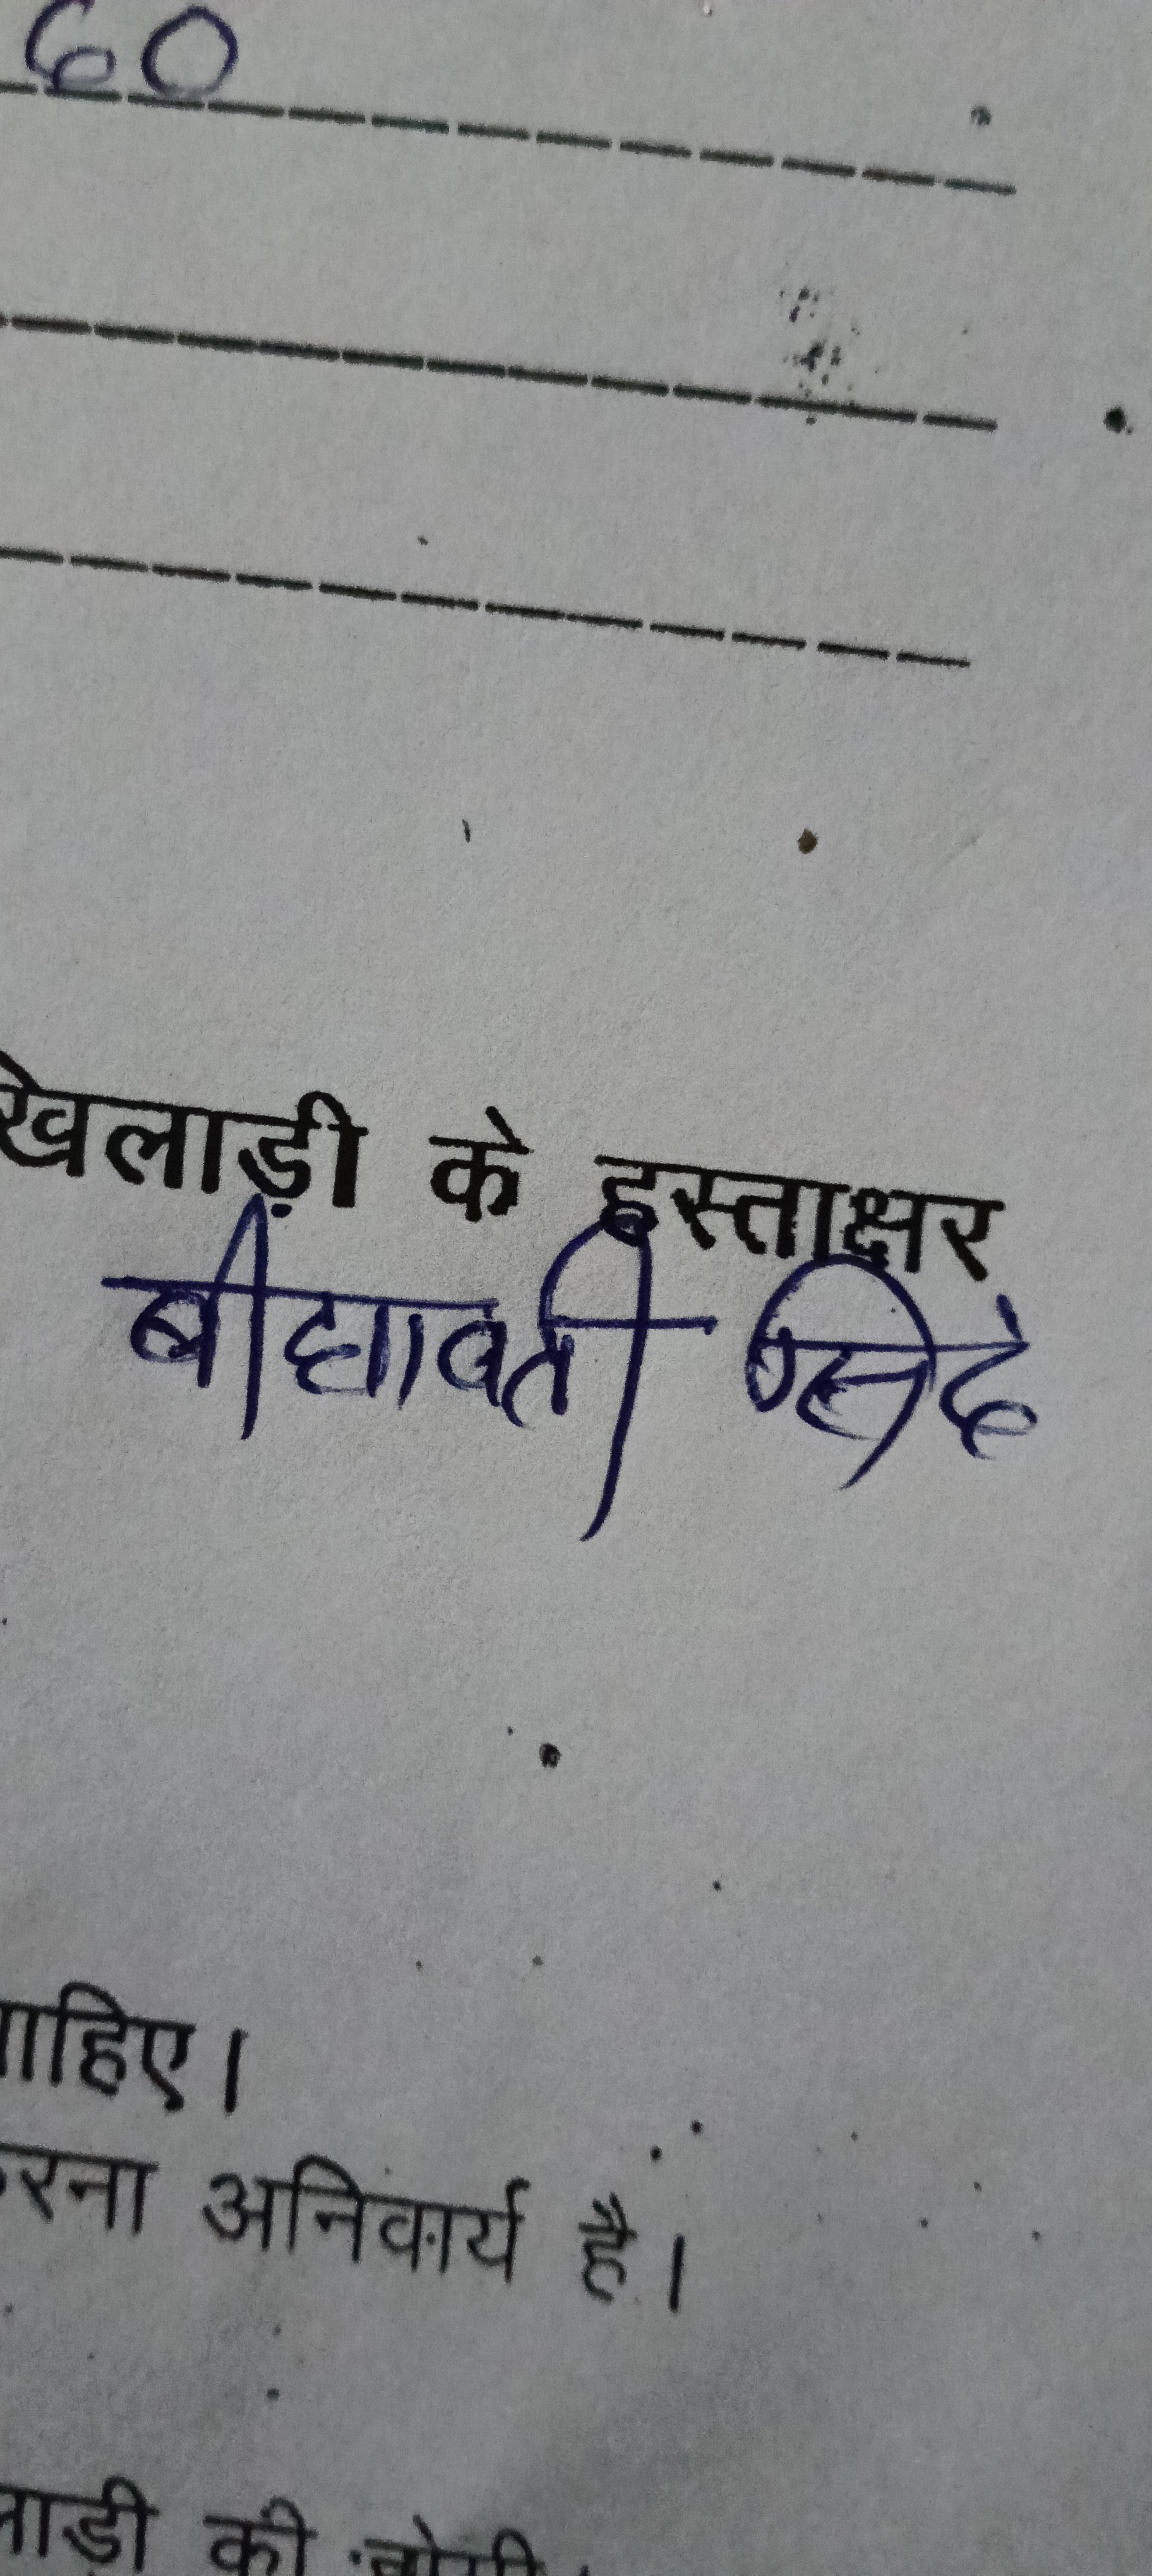 60
खिलाड़ी के हस्ताक्षर
बीद्यावती
ाहिए।
रना अनिवार्य है।
लाड़ी की